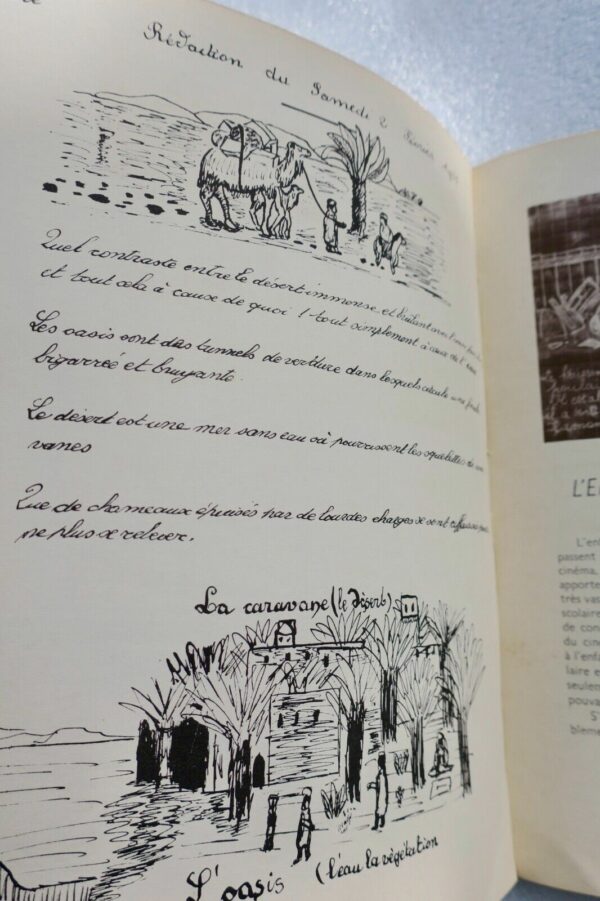 Rédaction du Samedi 2 Février
Quel contraste entre le désert immense et brûlant avec
et tout cela à cause de quoi ! tout simplement à cause de l'eau
Les oasis sont des tunnels de verdure dans lesquels circule une foule
bigarreé et bruyante.
Le désert est une mer sans eau où pourrissent les squelettes de
vanes
Que de chameaux épuisés par de lourdes charges se sont
ne plus se relever.
La caravane (le désert)
L'oasis (l'eau la végétation
L'E
L'enf
passent
cinéma,
apporte
très vas
scolaire
de con
du ciné
à l'enfa
laire e
seulen
pouva
S'
blemer